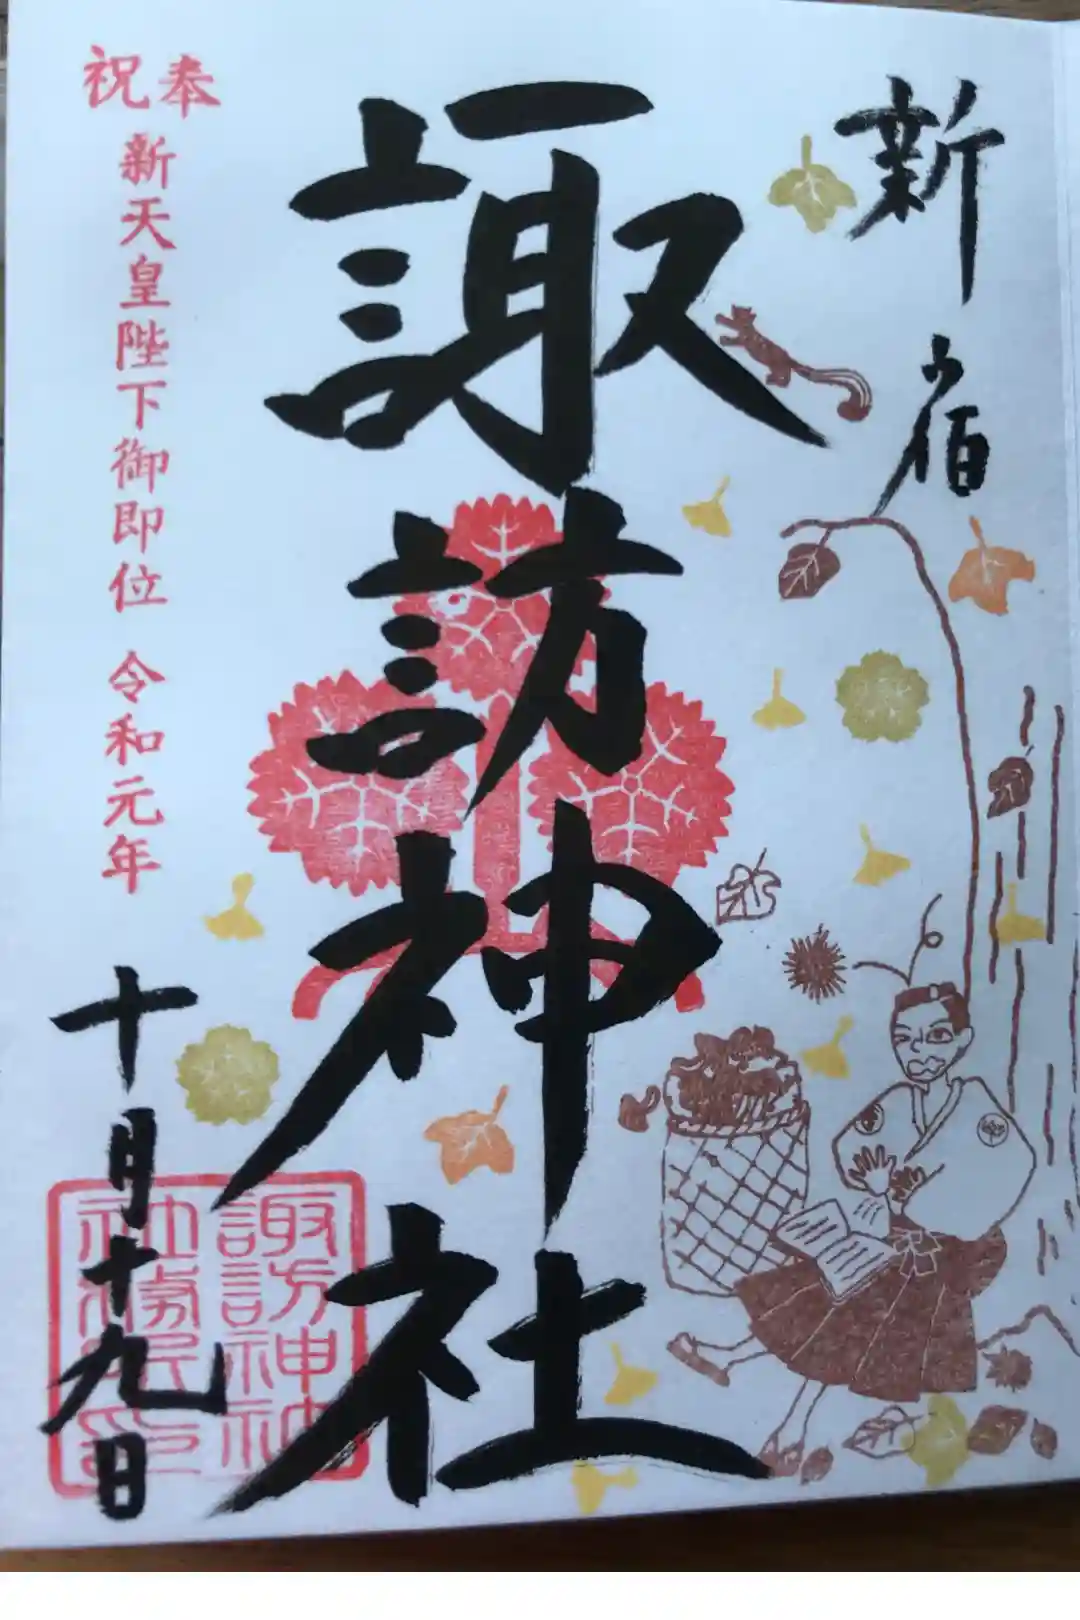 新宿
諏訪神社
奉祝
新天皇陛下御即位 令和元年
十月十九日
諏訪神社
社務所印